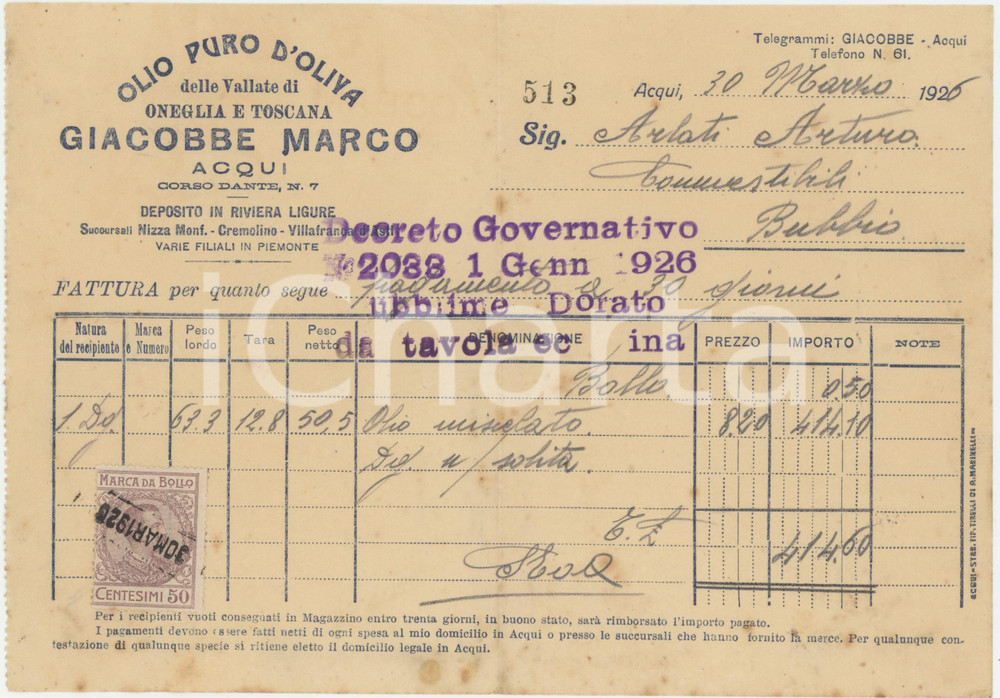 OLIO PURO D'OLIVA
delle Vallate di
ONEGLIA E TOSCANA
GIACOBBE MARCO
ACQUI
CORSO DANTE, N. 7
DEPOSITO IN RIVIERA LIGURE
Succursali Nizza Monf. - Cremolino - Villafranca d'Asti
VARIE FILIALI IN PIEMONTE
Telegrammi: GIACOBBE - Acqui
Telefono N. 61.
513 Acqui, 30 Marzo 1926
Sig. Arlati Arturo.
Commestibili
Bubbio.
Decreto Governativo
No 2033 1 Genn 1926
FATTURA per quanto segue pagamento a 30 giorni
ubblime Dorato
da tavola ec ina
Natura del recipiente Marca e Numero Peso lordo Tara Peso netto DENOMINAZIONE PREZZO IMPORTO NOTE
Bollo. 0.50
1 Dg. 63.3 12.8 50,5 Olio miscelato. 8.20 414.10
Dg. n/ solita.
414.60
MARCA DA BOLLO
30MAR1926
CENTESIMI 50
iCharta
ACQUI - STAB. TIP. TIRELLI DI A. MARINELLI
Per i recipienti vuoti consegnati in Magazzino entro trenta giorni, in buono stato, sarà rimborsato l'importo pagato.
I pagamenti devono essere fatti netti di ogni spesa al mio domicilio in Acqui o presso le succursali che hanno fornito la merce. Per qualunque con-
testazione di qualunque specie si ritiene eletto il domicilio legale in Acqui.